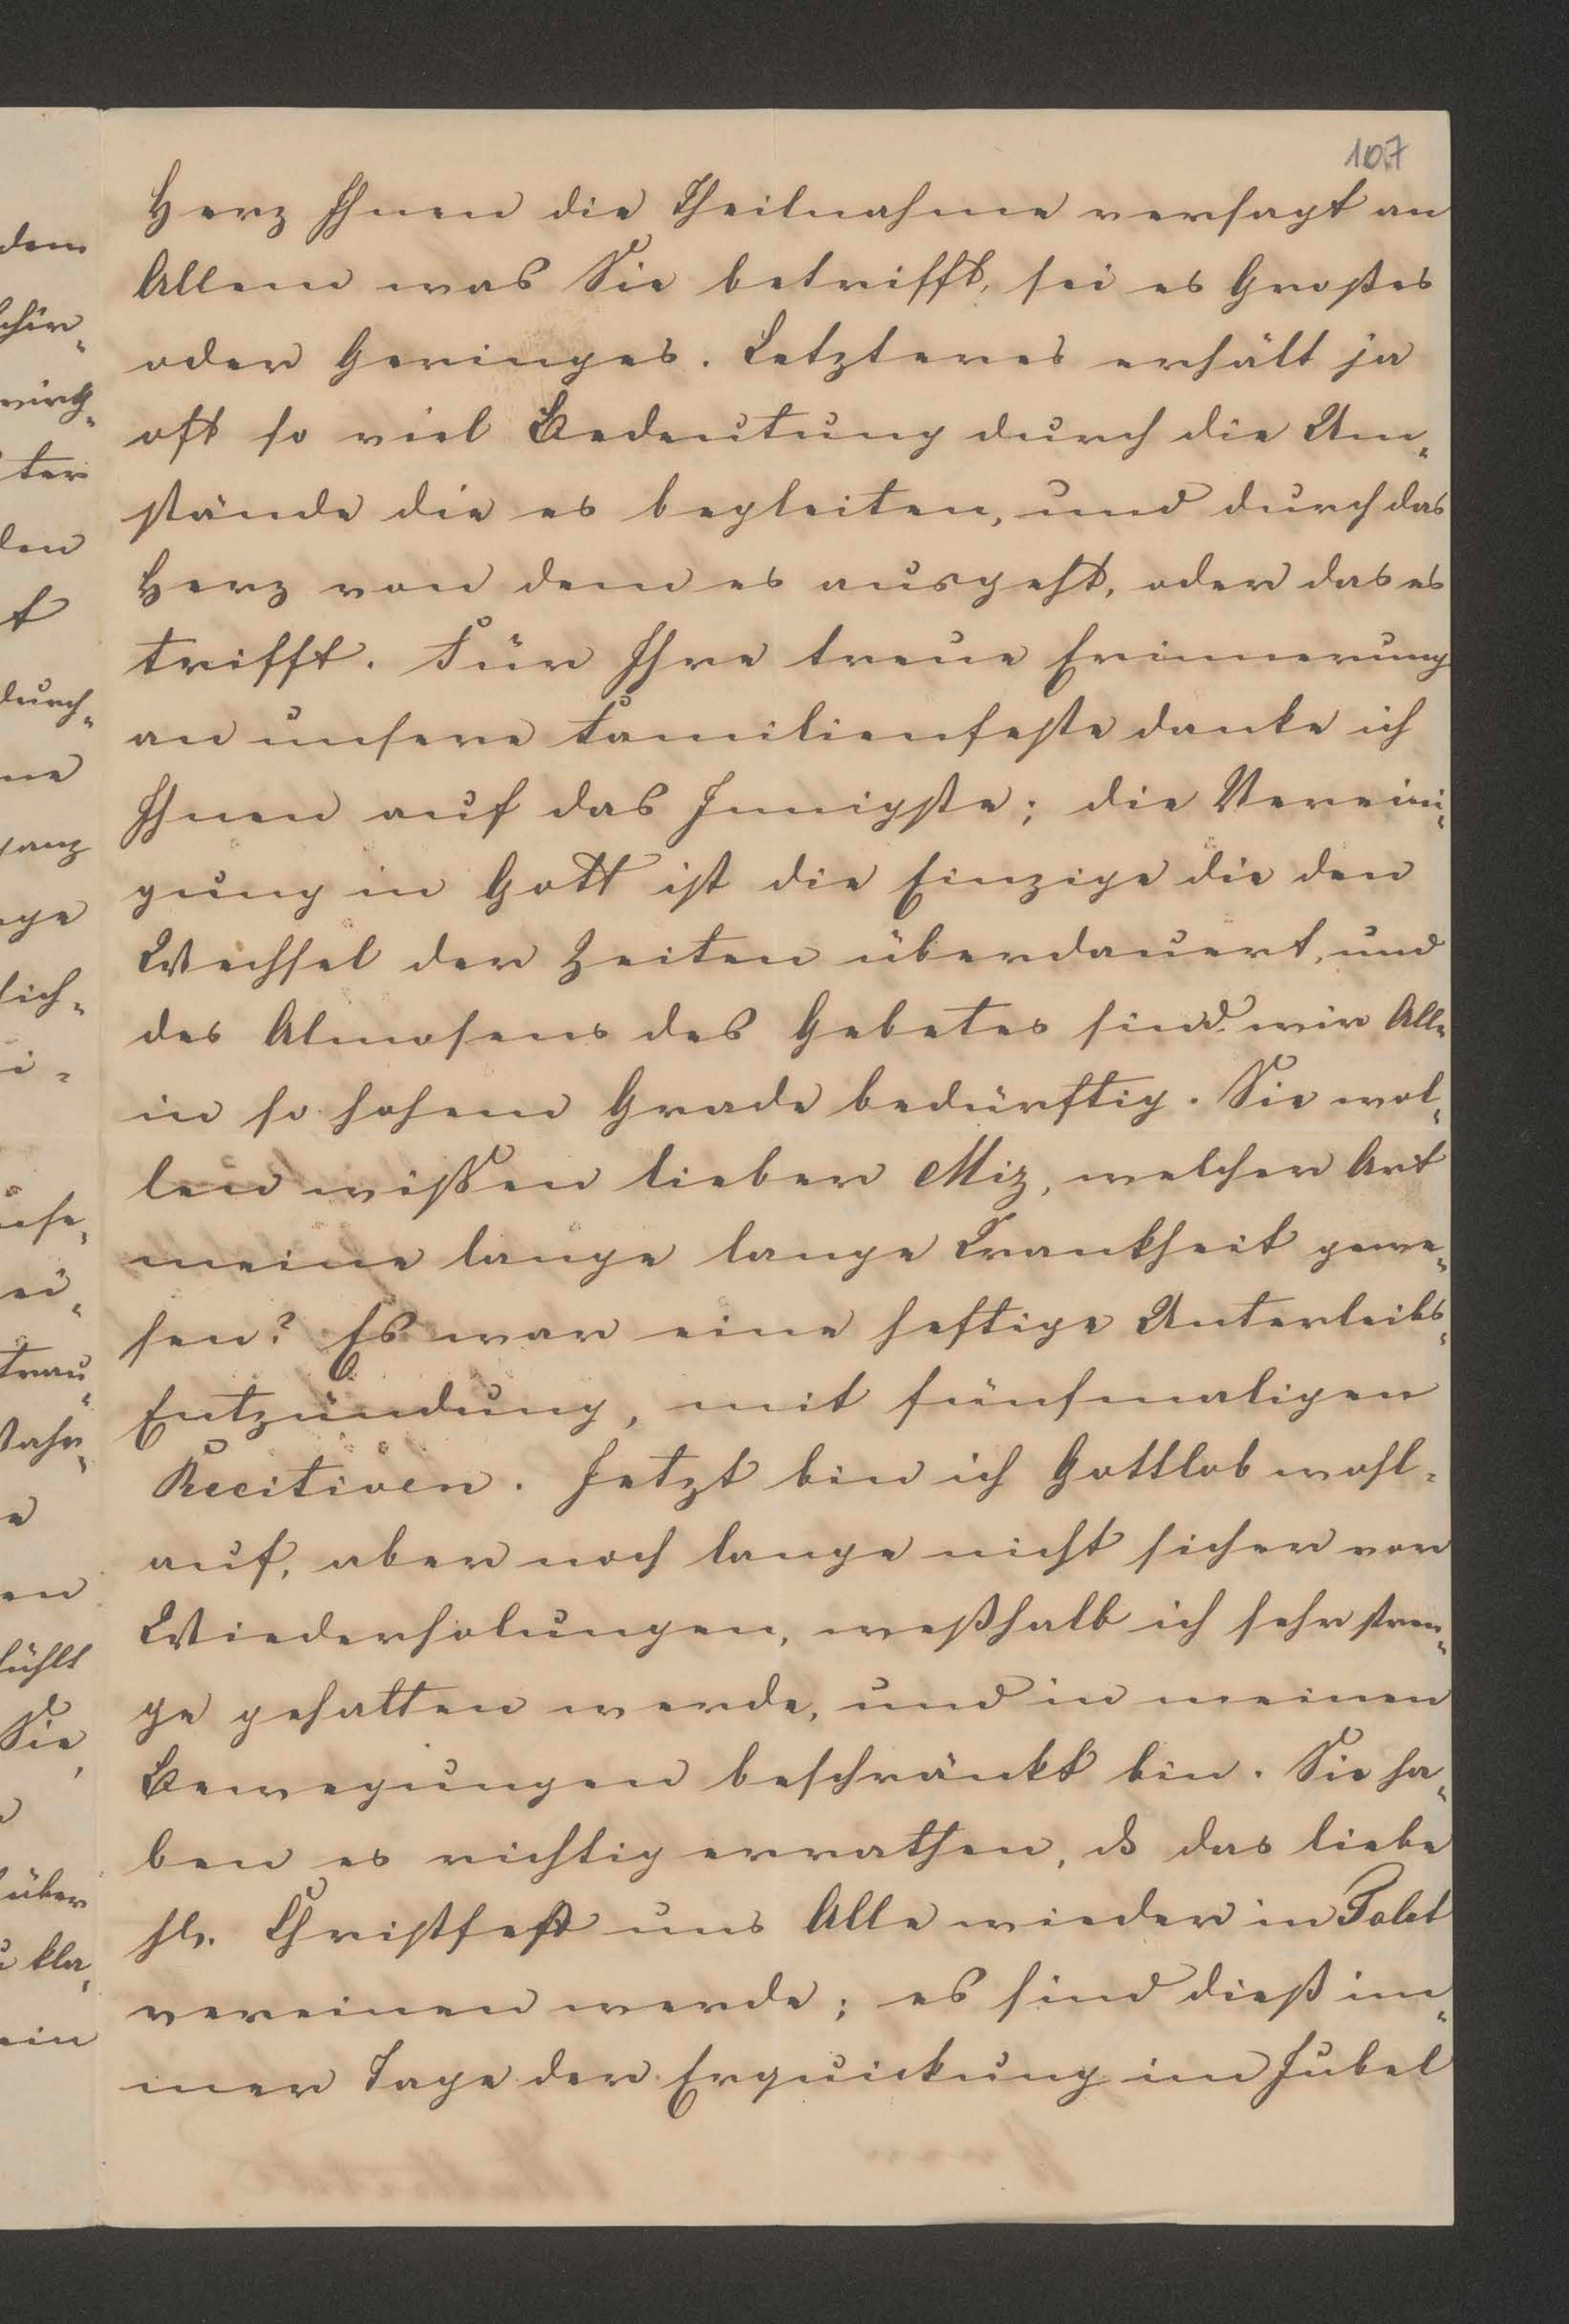 107
Herz Ihnen die Theilnahme versagt an
Allem was Sie betrifft, sei es Großes
oder Geringes. Letzteres erhält ja
oft so viel Bedeutung durch die Um-
stände die es begleiten, und durch das
Herz von dem es ausgeht, oder das es
trifft. Für Ihre treue Erinnerung
an unsere Familienfeste danke ich
Ihnen auf das Innigste; die Vereini-
gung in Gott ist die Einzige die den
Wechsel der Zeiten überdauert, und
des Almosens des Gebetes sind wir Alle
in so hohem Grade bedürftig. Sie wol-
len wissen lieber Miz, welcher Art
meine lange lange Krankheit gewe-
sen? Es war eine heftige Unterleibs-
Entzündung, mit fünfmaligen
Recitiven. Jetzt bin ich Gottlob wohl-
auf, aber noch lange nicht sicher vor
Wiederholungen, weßhalb ich sehr stren-
ge gehalten werde, und in meinen
Bewegungen beschränkt bin. Sie ha-
ben es richtig errathen, dß das liebe
hl. Christfest uns Alle wieder in Polet
vereinen werde; es sind dieß im-
mer Tage der Erquickung im Jubel
dem
ter
den
t
durch-
ne
ganz
lich-
i-
ei-
trau-
e
en
fühlt
Sie,
über
kla-
ein